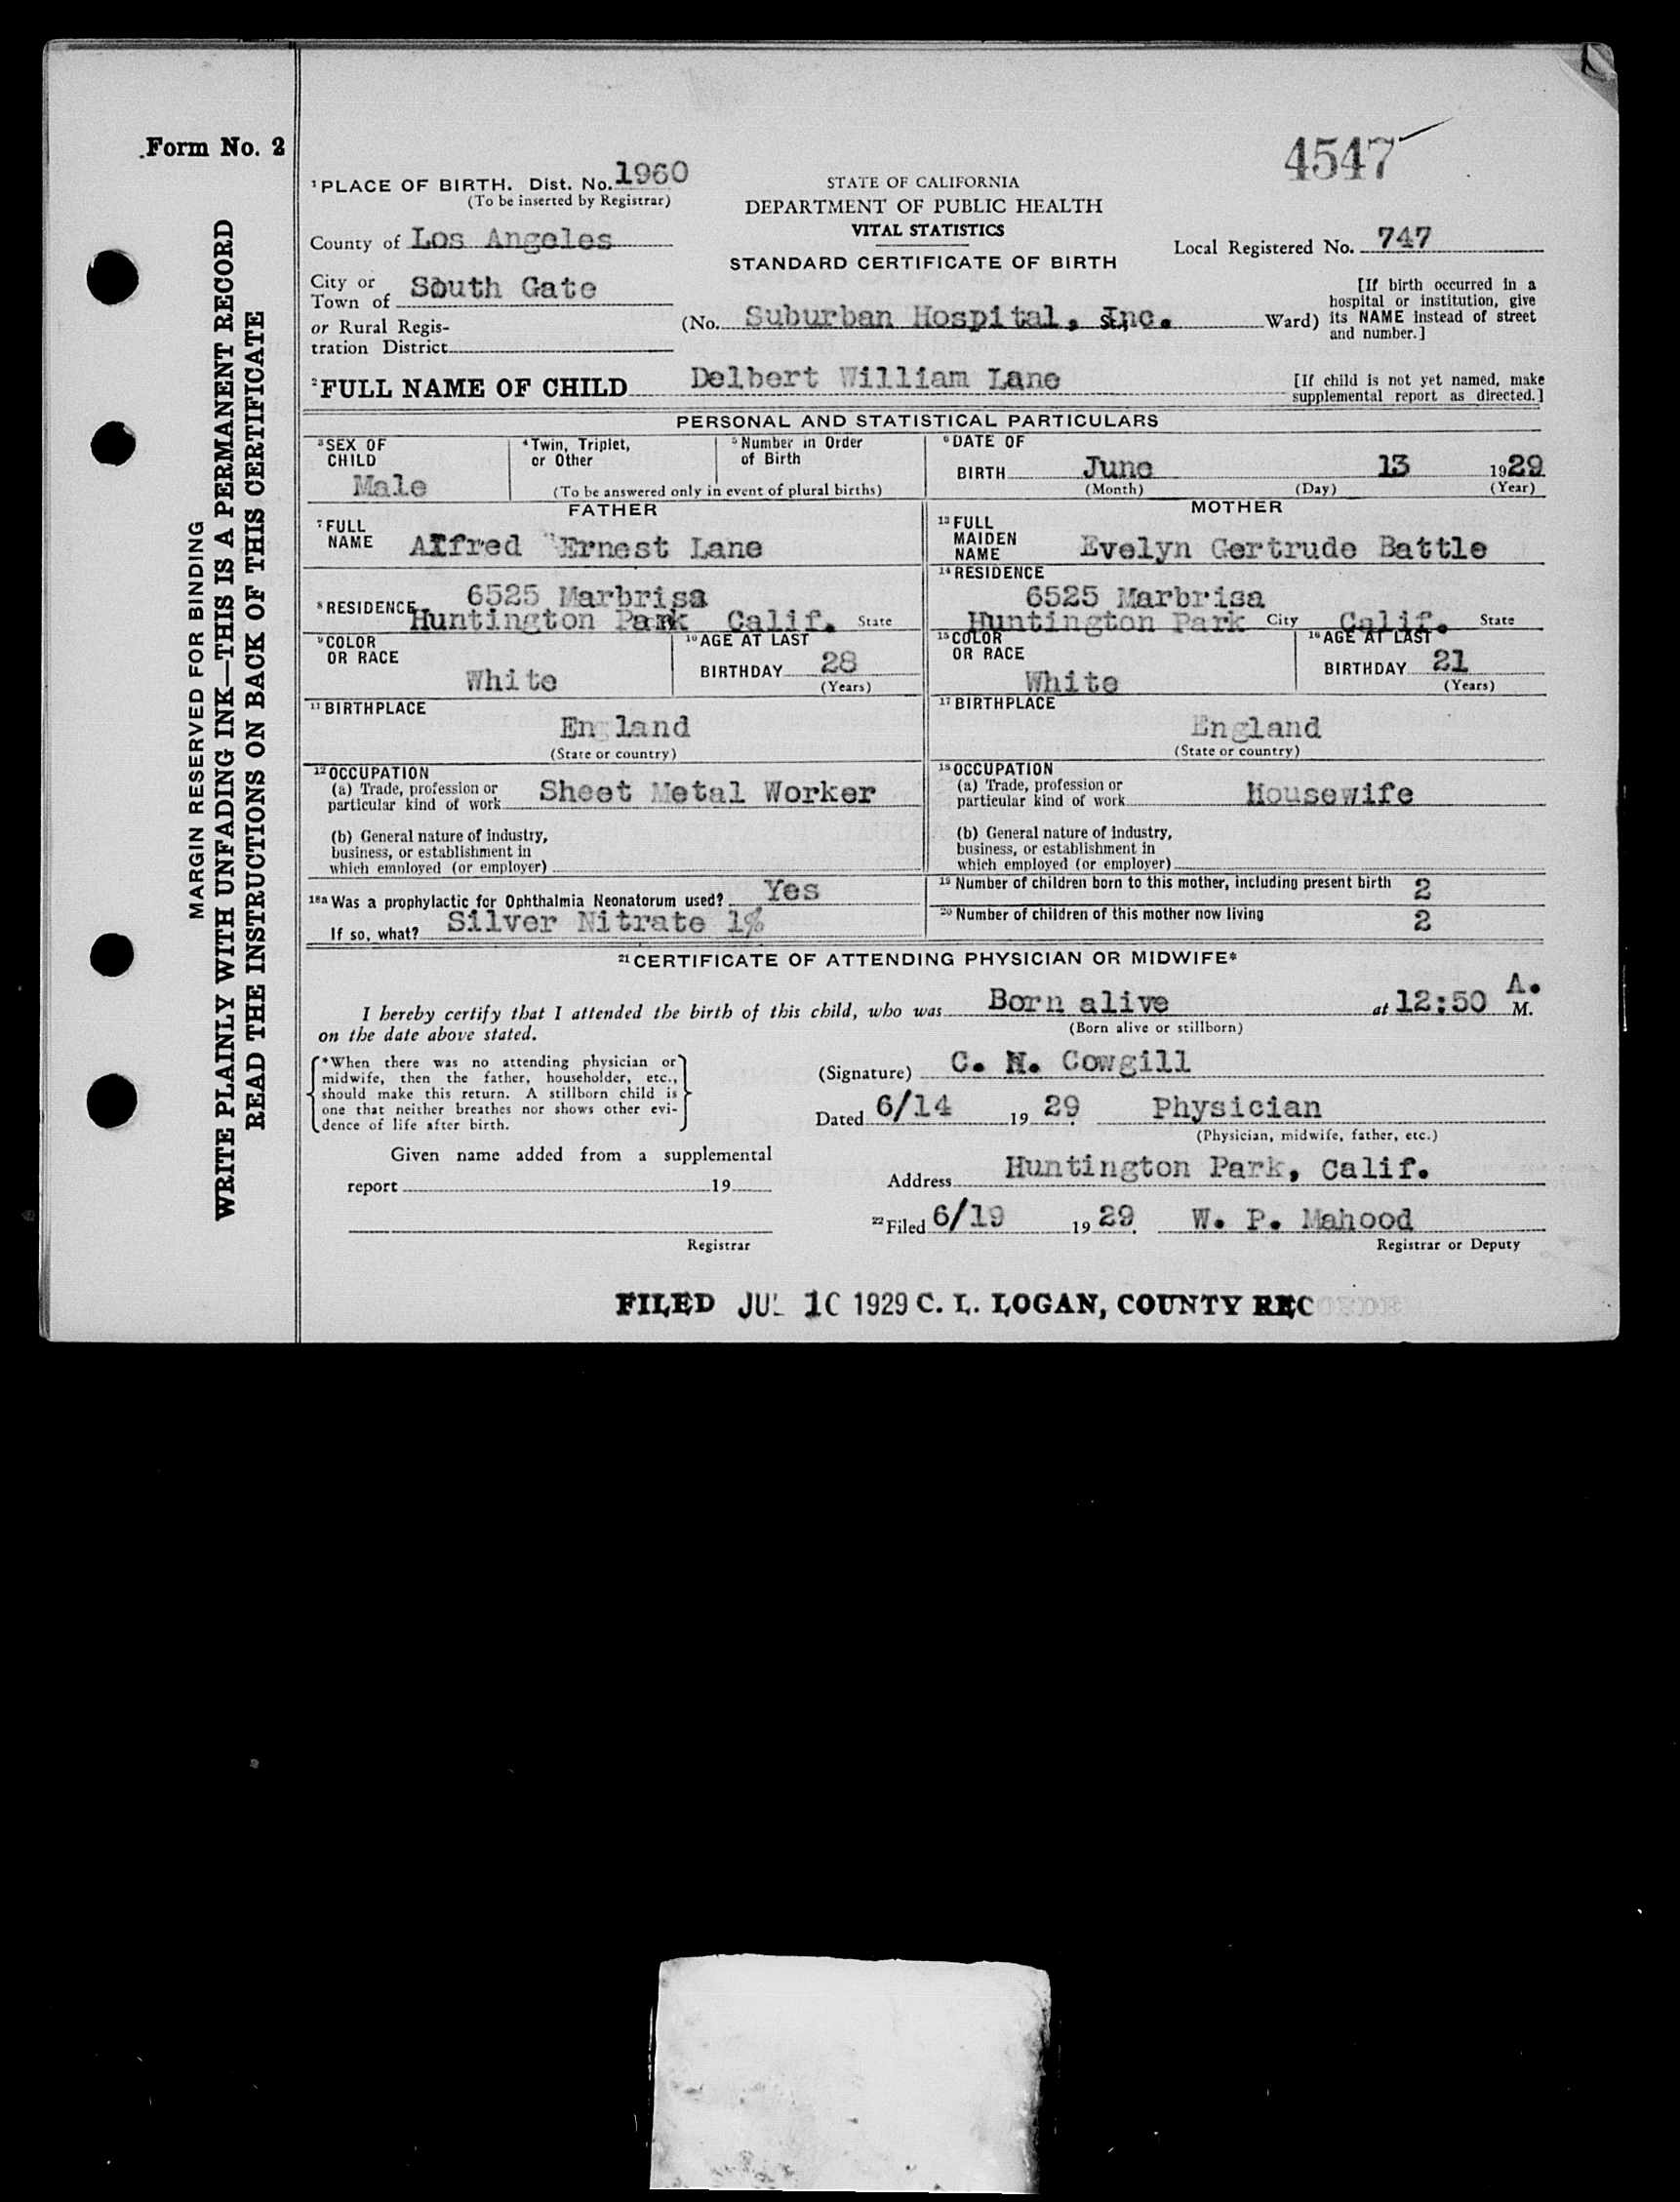 Form No. 2
4547
MARGIN RESERVED FOR BINDING
WRITE PLAINLY WITH UNFADING INK—THIS IS A PERMANENT RECORD
READ THE INSTRUCTIONS ON BACK OF THIS CERTIFICATE
1 PLACE OF BIRTH. Dist. No. 1960
(To be inserted by Registrar)
STATE OF CALIFORNIA
DEPARTMENT OF PUBLIC HEALTH
VITAL STATISTICS
STANDARD CERTIFICATE OF BIRTH
Local Registered No. 747
County of Los Angeles
City or Town of South Gate
or Rural Registration District
(No. Suburban Hospital, Inc. St., Ward)
[If birth occurred in a
hospital or institution, give
its NAME instead of street
and number.]
2 FULL NAME OF CHILD Delbert William Lane
[If child is not yet named, make
supplemental report as directed.]
PERSONAL AND STATISTICAL PARTICULARS
3 SEX OF CHILD Male
4 Twin, Triplet, or Other
5 Number in Order of Birth
(To be answered only in event of plural births)
6 DATE OF BIRTH June 13 1929
(Month) (Day) (Year)
FATHER
7 FULL NAME Alfred Ernest Lane
8 RESIDENCE 6525 Marbrisa
Huntington Park Calif. State
9 COLOR OR RACE White
10 AGE AT LAST BIRTHDAY 28
(Years)
11 BIRTHPLACE England
(State or country)
12 OCCUPATION
(a) Trade, profession or
particular kind of work Sheet Metal Worker
(b) General nature of industry,
business, or establishment in
which employed (or employer)
MOTHER
13 FULL MAIDEN NAME Evelyn Gertrude Battle
14 RESIDENCE
6525 Marbrisa
Huntington Park City Calif. State
15 COLOR OR RACE White
16 AGE AT LAST BIRTHDAY 21
(Years)
17 BIRTHPLACE
England
(State or country)
18 OCCUPATION
(a) Trade, profession or
particular kind of work Housewife
(b) General nature of industry,
business, or establishment in
which employed (or employer)
18a Was a prophylactic for Ophthalmia Neonatorum used? Yes
If so, what? Silver Nitrate 1%
19 Number of children born to this mother, including present birth 2
20 Number of children of this mother now living 2
21 CERTIFICATE OF ATTENDING PHYSICIAN OR MIDWIFE*
I hereby certify that I attended the birth of this child, who was Born alive at 12:50 A. M.
(Born alive or stillborn)
on the date above stated.
*When there was no attending physician or
midwife, then the father, householder, etc.,
should make this return. A stillborn child is
one that neither breathes nor shows other evi-
dence of life after birth.
(Signature) C. H. Cowgill
Dated 6/14 1929. Physician
(Physician, midwife, father, etc.)
Given name added from a supplemental
report 19
Address Huntington Park, Calif.
22 Filed 6/19 1929. W. P. Mahood
Registrar
Registrar or Deputy
FILED JUL 10 1929 C. L. LOGAN, COUNTY REC